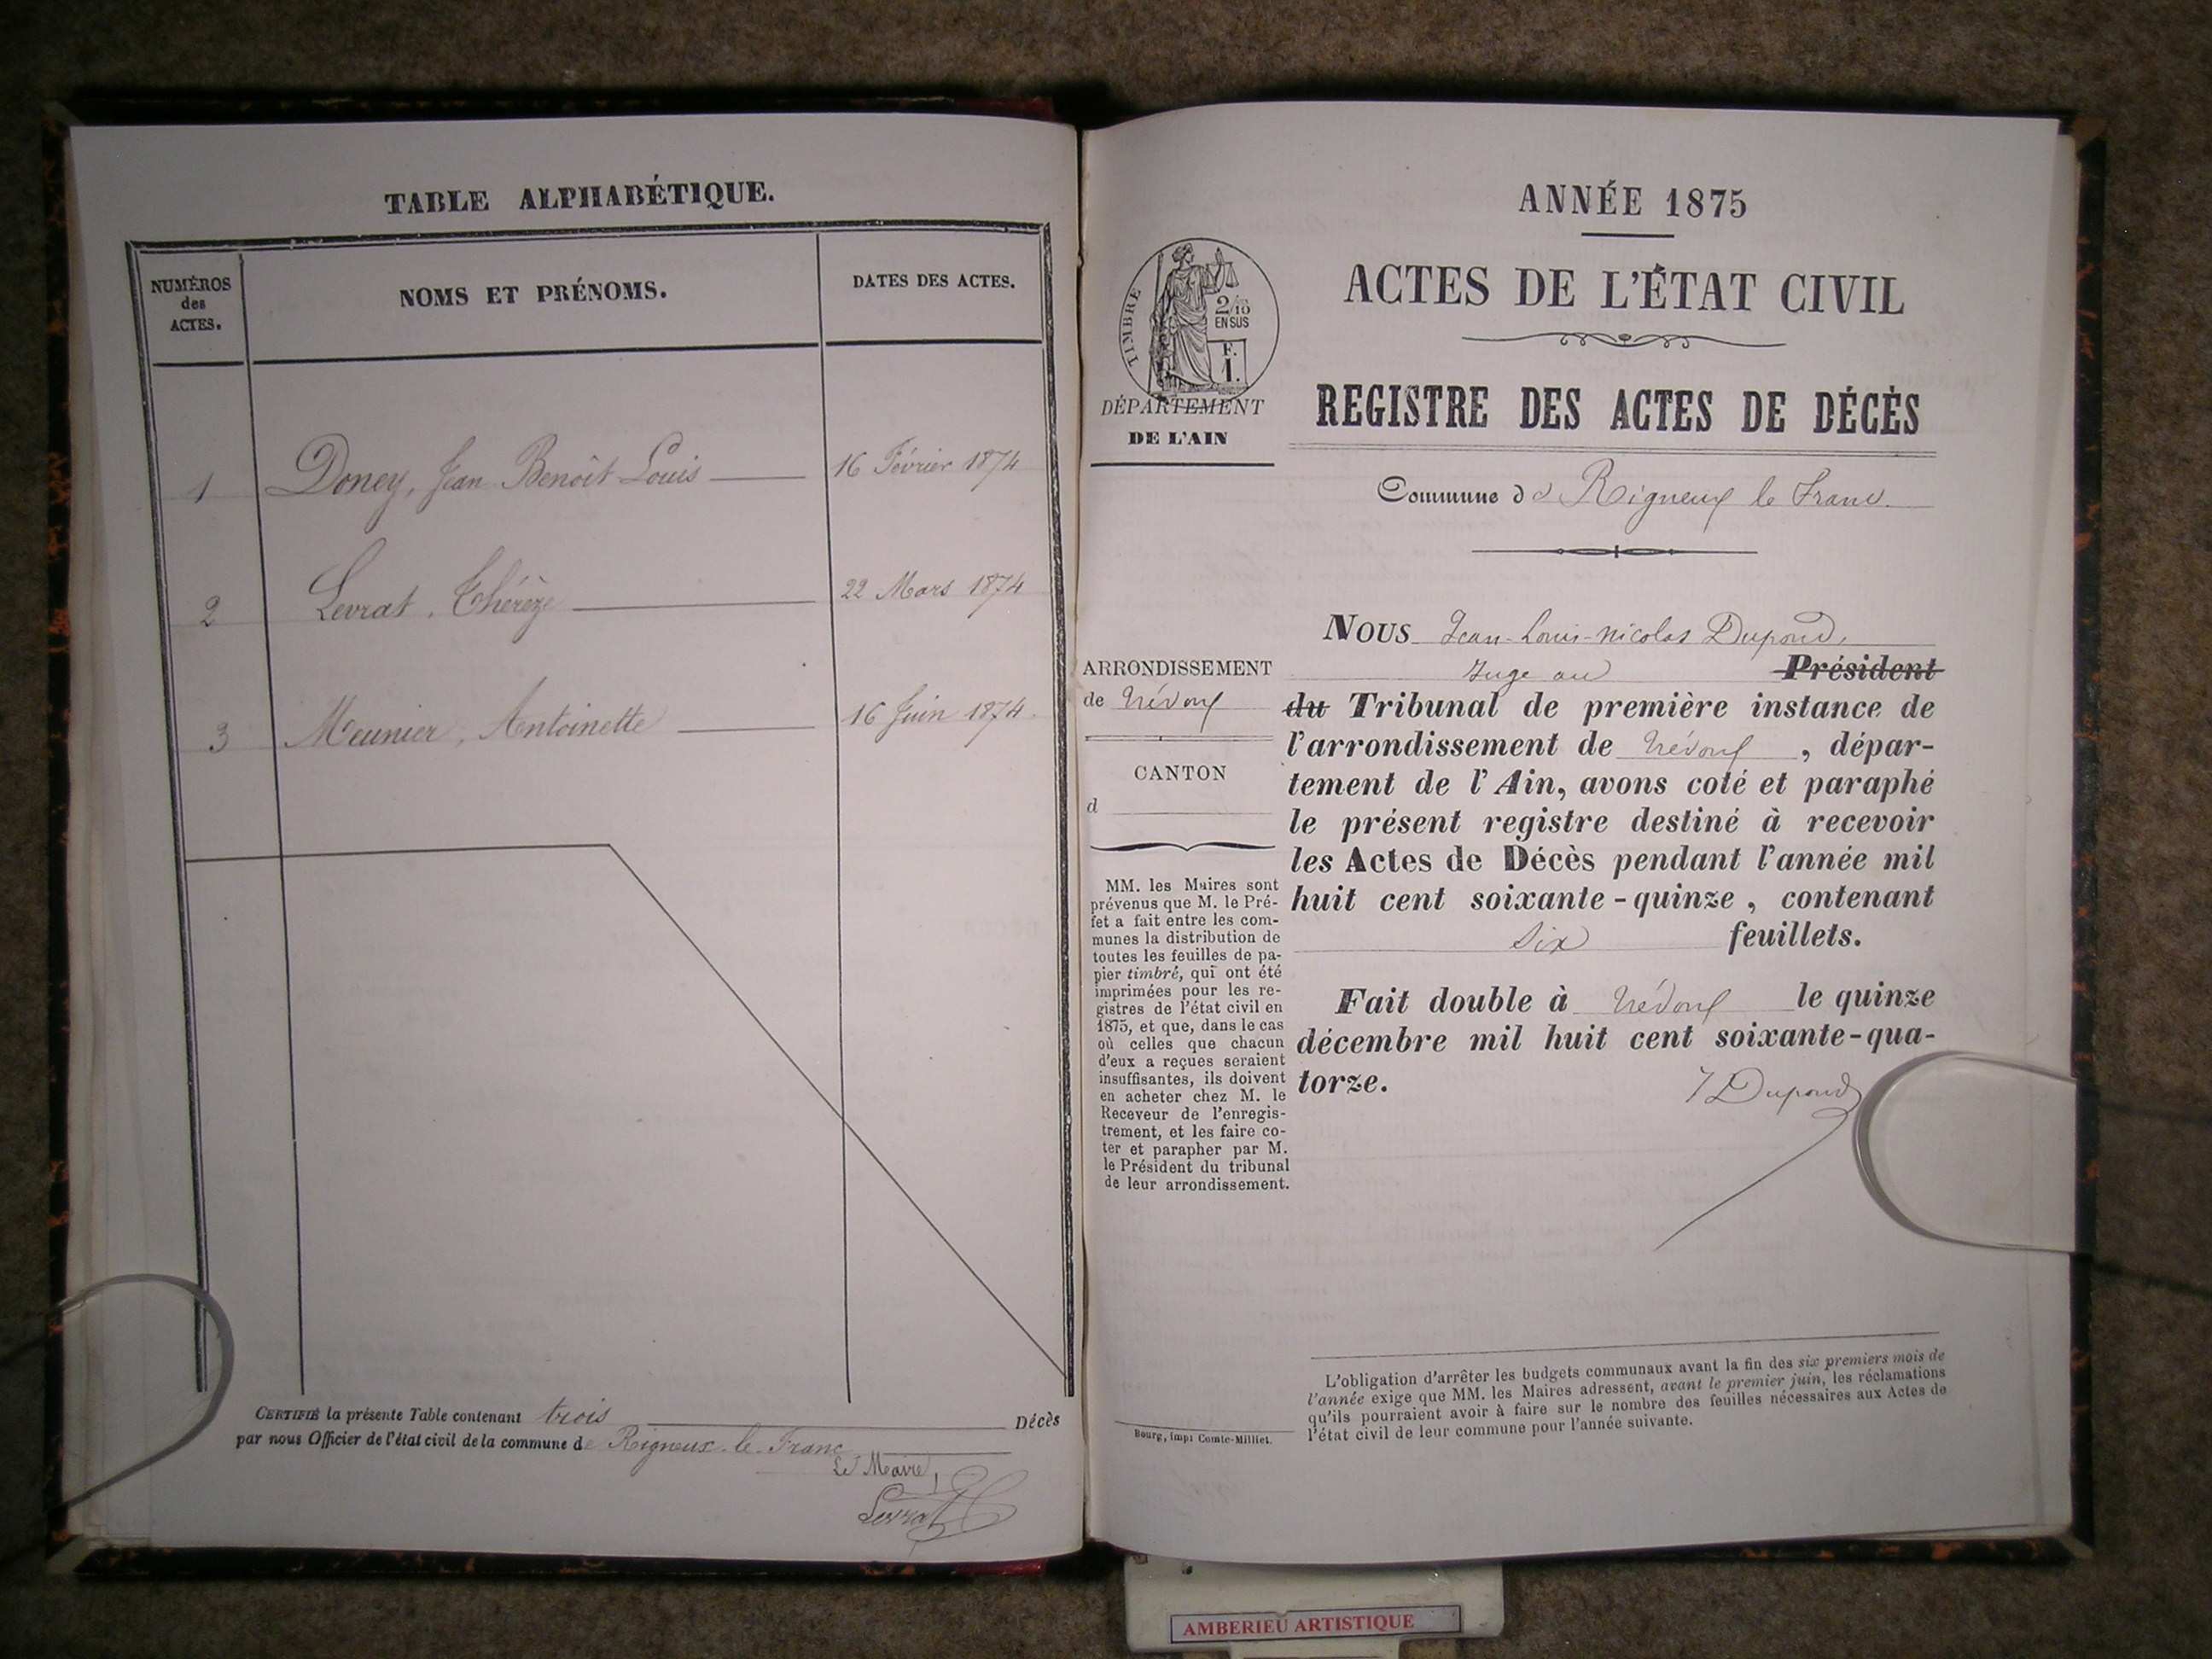 TABLE ALPHABÉTIQUE.
NUMÉROS
des
ACTES.
NOMS ET PRÉNOMS.
DATES DES ACTES.
1 Doney, Jean Benoît Louis 16 Février 1874
2 Levrat, Thérèze 22 Mars 1874
3 Meunier, Antoinette 16 Juin 1874
CERTIFIÉ la présente Table contenant trois Décès
par nous Officier de l'état civil de la commune de Rigneux-le-Franc
Le Maire,
Levrat
ANNÉE 1875
ACTES DE L'ÉTAT CIVIL
REGISTRE DES ACTES DE DÉCÈS
TIMBRE
2/10
EN SUS
F.
1.
DÉPARTEMENT
DE L'AIN
Commune de Rigneux le Franc.
ARRONDISSEMENT
de Trévoux
CANTON
d
MM. les Maires sont
prévenus que M. le Pré-
fet a fait entre les com-
munes la distribution de
toutes les feuilles de pa-
pier timbré, qui ont été
imprimées pour les re-
gistres de l'état civil en
1875, et que, dans le cas
où celles que chacun
d'eux a reçues seraient
insuffisantes, ils doivent
en acheter chez M. le
Receveur de l'enregis-
trement, et les faire co-
ter et parapher par M.
le Président du tribunal
de leur arrondissement.
Bourg, imp. Comte-Milliet.
NOUS Jean-Louis-Nicolas Dupond,
Juge au Président
du Tribunal de première instance de
l'arrondissement de Trévoux, dépar-
tement de l'Ain, avons coté et paraphé
le présent registre destiné à recevoir
les Actes de Décès pendant l'année mil
huit cent soixante-quinze, contenant
Six feuillets.
Fait double à Trévoux le quinze
décembre mil huit cent soixante-qua-
torze.
Dupond
L'obligation d'arrêter les budgets communaux avant la fin des six premiers mois de
l'année exige que MM. les Maires adressent, avant le premier juin, les réclamations
qu'ils pourraient avoir à faire sur le nombre des feuilles nécessaires aux Actes de
l'état civil de leur commune pour l'année suivante.
AMBERIEU ARTISTIQUE